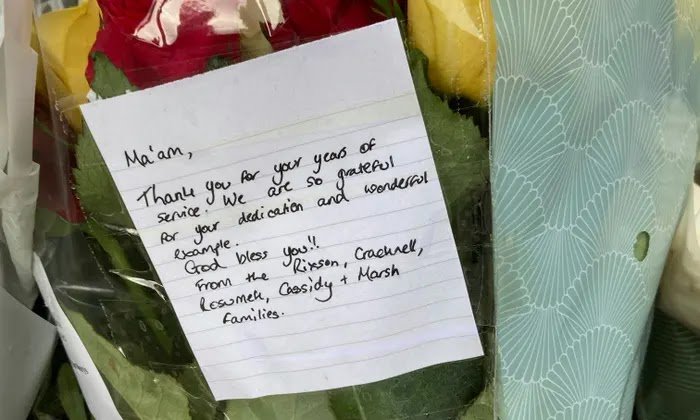 Ma'am,
Thank you for your years of
service. We are so grateful
for your dedication and wonderful
example.
God bless you!!
From the Rixson, Cracknell,
Resumek, Cassidy + Marsh
families.